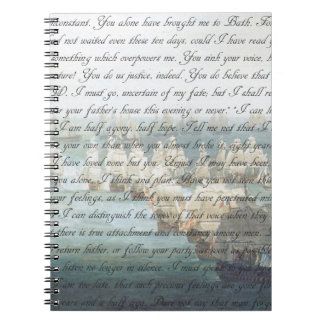 nconstant. You alone have brought me to Bath. Fo
d not waited even these ten days, could I have read y
something which overpowers me. You sink your voice, b
ature! You do us justice, indeed. You do believe that
D. I must go, uncertain of my fate; but I shall re
er your father's house this evening or never." "I can l
I am half agony, half hope. Tell me not that I
your own than when you almost broke it eight year
I have loved none but you. Unjust I may have been
you alone, I think and plan. Have you not
our feelings, as I think you must have penetrated m
I can distinguish the tones of that voice when they
there is true attachment and constancy among men.
return hither, or follow your party, as soon as
listen no longer in silence. I must speak to you
am too late, that such precious feelings are gone fo
years and a half ago. Dare not say that man forg